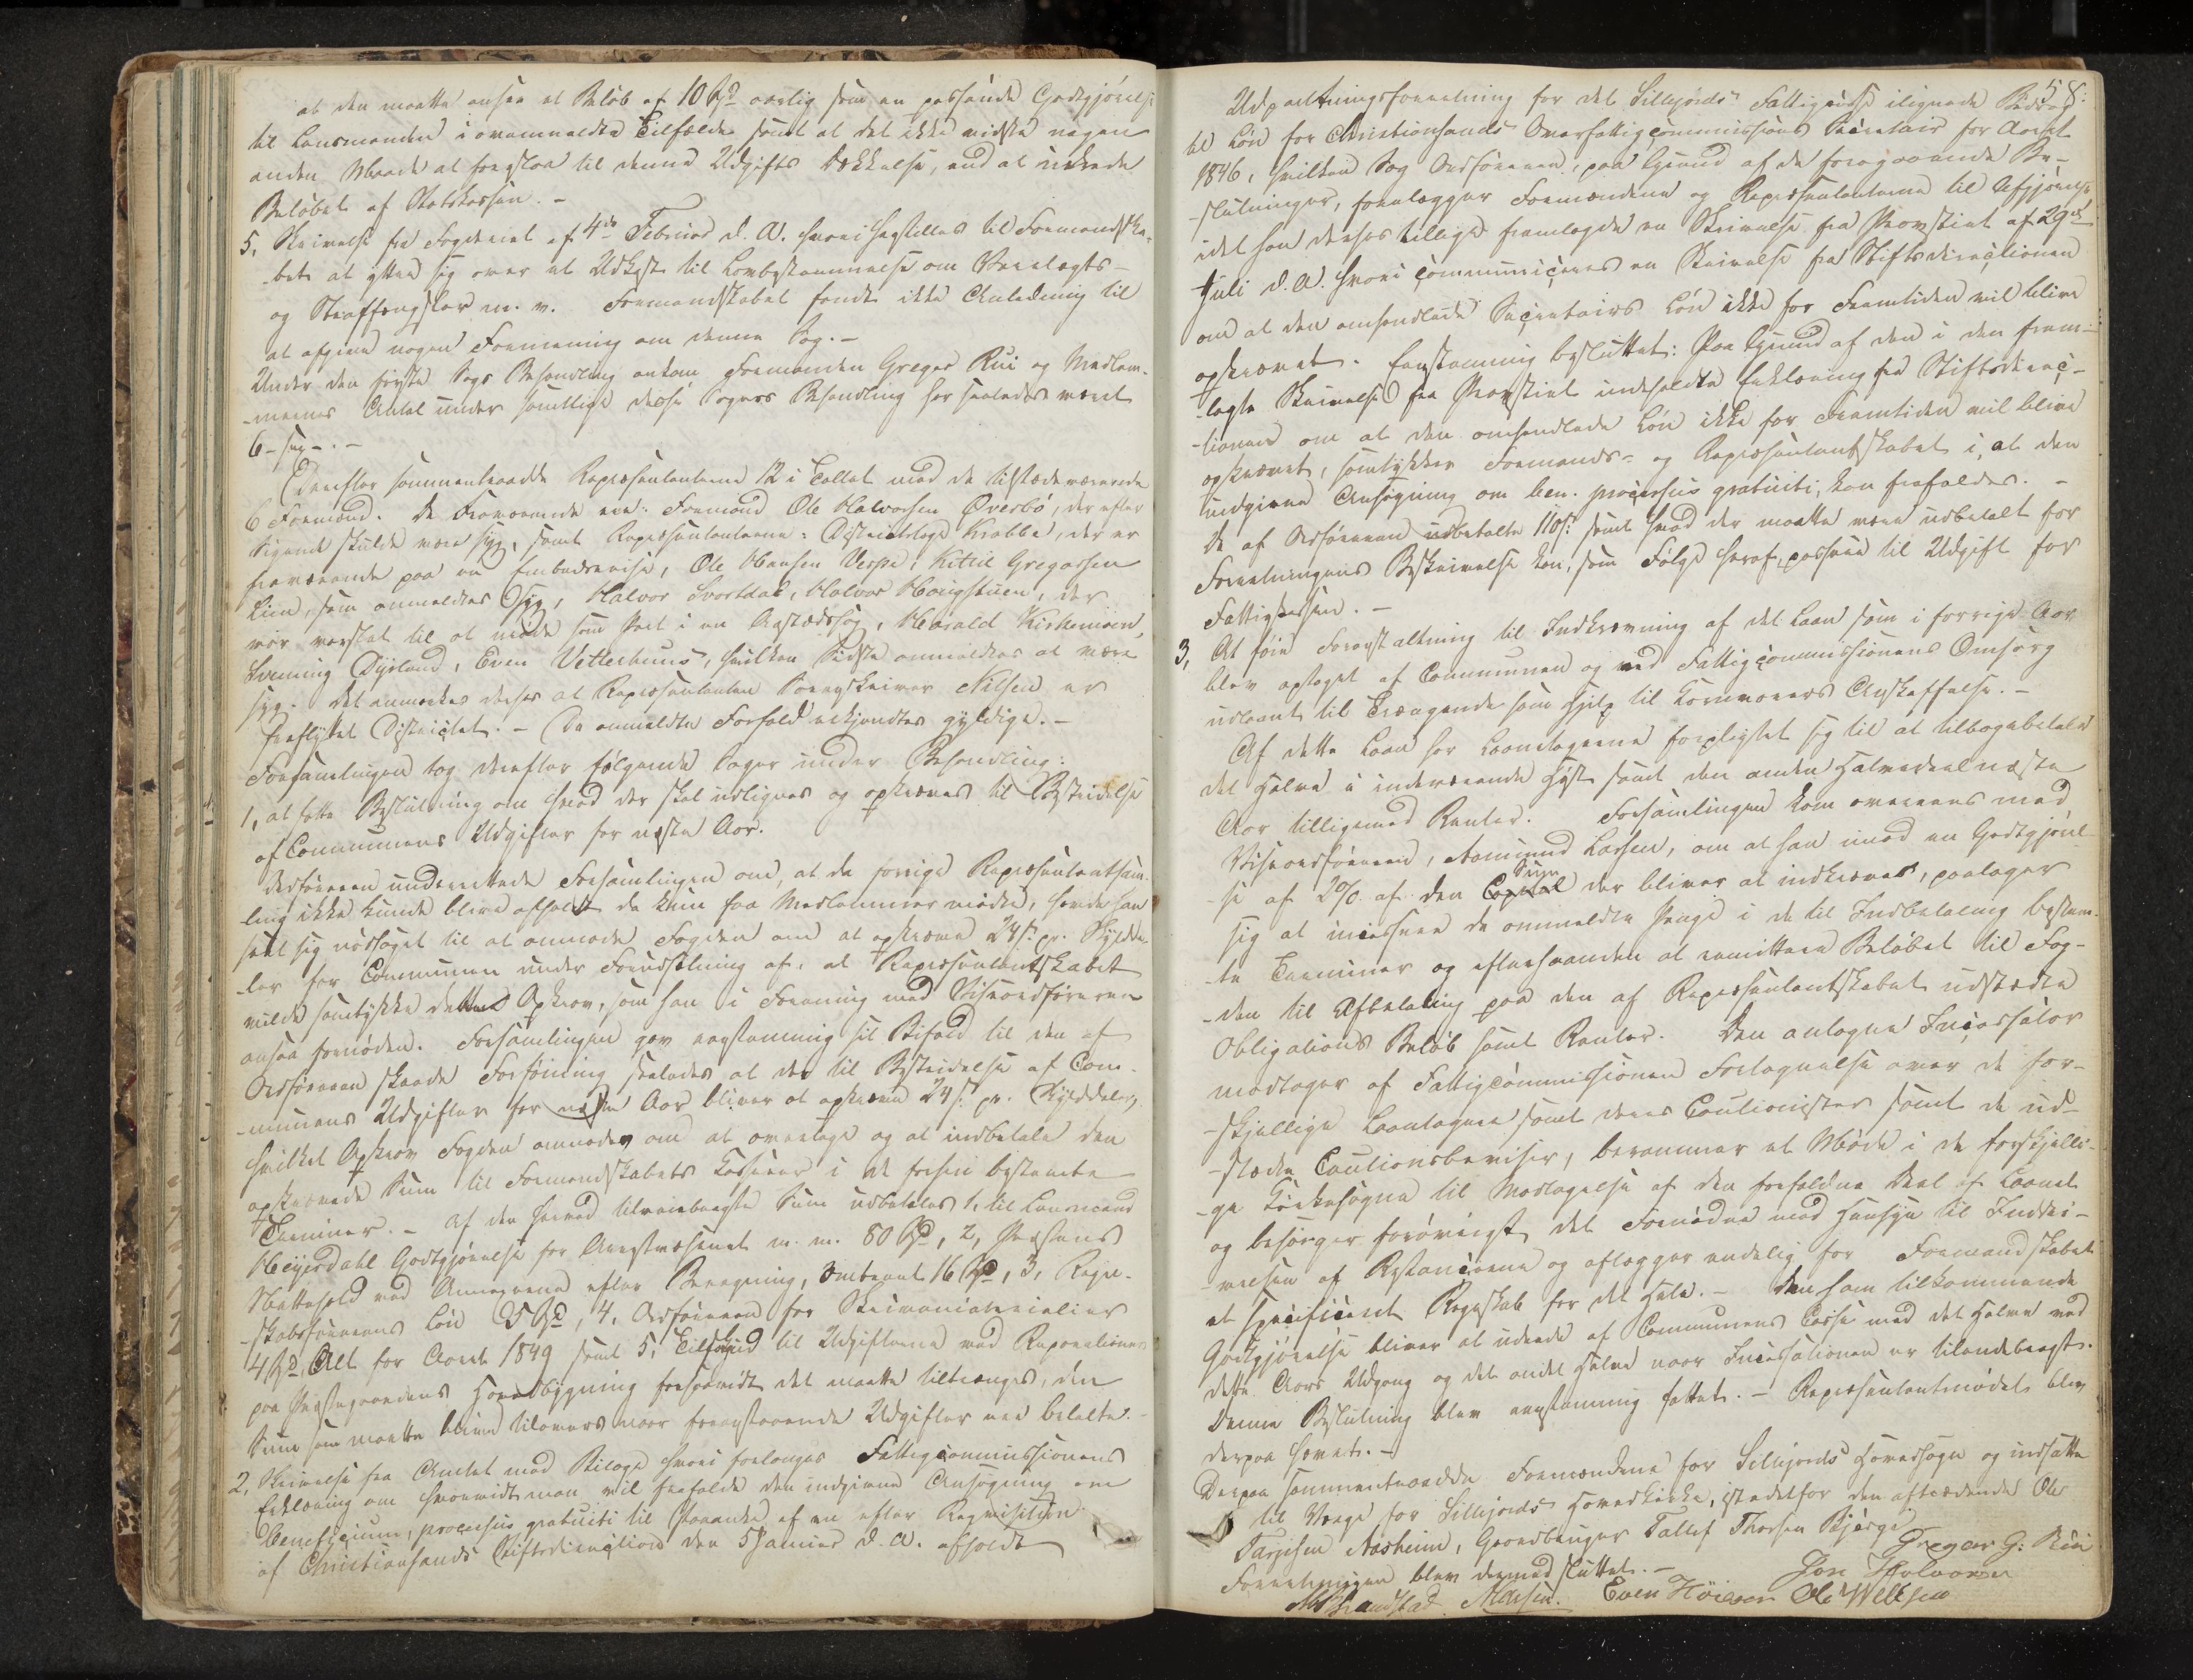 at den maatte ansee et Beløb af 10 Spd aarlig som en passende Godtgjørelse
til Lensmanden i ovenmeldte Tilfælde samt at det ikke vidste nogen
anden Maade at foreslaa til denne Udgifts Dækkelse, end at udrede
Beløbet af Statskassen. -
5, Skrivelse fra Fogderiet af 4de Februar d. A. hvori henstilles til Formandska-
-bet at yttre sig over et Udkast til Lovbestemmelse om Varetægts-
og Straffengsler m. v. Formandskabet fandt ikke Anledning til
at afgive nogen Formening om denne Sag. -
Under den første Sags Behandling ankom Formanden Gregar Rui og Medlem-
-mernes Antal under samtlige disse Sagers Behandling har saaledes været
6 - sex -. -
Derefter sammentraadte Repræsentanterne 12 i Tallet med de tilstædeværende
6 Formænd. De Fraværende ere: Formand Ole Halvorsen Øverbø, der efter
Sigende skulde være syg, samt Repræsentanterne: Districtslæge Krabbe, der er
fraværende paa en Embedsreise, Ole Hansen Vesps, Kittil Gregarsen
Lien, som anmeldtes syg, Halvor Svartdal, Halvor Haugstuen, der
var varslet til at møde som Part i en Aastædssag, Harald Kirkemoen,
Svenning Dyrland, Even Vetterhuus, hvilken Sidste anmeldtes at være
syg. Det anmærkes derhos at Repræsentanten Sorenskriver Nilsen er
fraflyttet Districtet. - De anmeldte Forfald erkjendtes gyldige. -
Forsamlingen tog derefter følgende Sager under Behandling:
1, at fatte Beslutning om hvad der skal udlignes og opkræves til Bestridelse
af Communens Udgifter for næste Aar.
Ordføreren underrettede Forsamlingen om, at da forrige Repræsentantsam-
ling ikke kunde blive afholdt da kun faa Medlemmer mødte, havde han
seet sig nødsaget til at anmode Fogden om at opkræve 24 s: pr. Skyldda-
-ler for Communen under Forudsætning af, at Repræsentantskabet
vilde samtykke dette Opkrav, som han i Forening med Viseordføreren
ansaa fornøden. Forsamlingen gav eenstemmig sit Bifald til den af
Ordføreren skeede Forføining saaledes at der til Bestridelse af Com-
-munens Udgifter for næste Aar bliver at opkræve 24 s: pr. Skylddaler,
hvilket Opkrav Fogden anmodes om at overtage og at indbetale den
opkrævede Sum til Formandskabets Kasserer i de forhen bestemte
Terminer. - Af den herved tilveiebragte Sum udbetales 1, til Lensmand
Heyerdahl Godtgjørelse for Arrestvæsenet m. m. 80 Spd, 2,
Nattehold ved Annexerne efter Beregning, omtrent 16 Spd, 3, Regn-
-skabsførerens Løn 25 Spd, 4, Ordføreren for Skrivemateriealier
4 Spd, Alt for Aaret 1849 samt 5, Tilskud til Udgifterne ved Reparationer
paa Præstegaardens Hovedbygning forsaavidt det maatte tiltrænges, den
Sum som maatte blive tilovers naar foranstaaende Udgifter ere betalte. -
2, Skrivelse fra Amtet med Bilage hvori forlanges Fattigcommissionens
Erklæring om hvorvidt man vil frafalde den indgivne Ansøgning om
beneficium, processus gratuiti til Paaanke af en efter Reqvisition
af Christiansands Stiftsdirection den 5 Januar d. A. afholdt
58.
Udpantningsforretning for det Sillejords Fattigcasse ilignede Bidrag
til Løn for Christiansands Overfattigcommissions Secretair for Aaret
1846, hvilken Sag Ordføreren, paa Grund af de foregaaende Be-
-slutninger, forelægger Formændene og Repræsentanterne til Afgjørelse
idet han derhos tillige fremlagde en Skrivelse fra Provstiet af 29de
Juli d. A. hvori communiceres en Skrivelse fra Stiftsdirectionen
om at den omhandlede Secretairs Løn ikke for Fremtiden vil blive
opkrævet. Eenstemmig besluttet: Paa Grund af den i den frem-
-lagte Skrivelse fra Provstiet indeholdte Erklæring fra Stiftsdirec-
-tionen om at den omhandlede Løn ikke for Fremtiden vil blive
opkrævet, samtykker Formands- og Repræsentantskabet i, at den
indgivne Ansøgning om ben. processus gratuiti, kan frafaldes. -
De af Ordføreren udbetalte 110 s: samt hvad der maatte være udbetalt for
Forretningens Beskrivelse kan, som Følge heraf, passere til Udgift for
Fattigkassen. -
3, At føie Foranstaltning til Indkrævning af det Laan som i forrige Aar
blev optaget af Communen og ved Fattigcommissionens Omsorg
udlaant til Trængende som Hjelp til Kornvarers Anskaffelse. -
Af dette Laan har Laantagerne forpligtet sig til at tilbagebetale
det Halve i indeværende Høst samt den anden Halvedeel næste
Aar tilligemed Renter. Forsamlingen kom overeens med
Viseordføreren, Aamund Larsen, om at han imod en Godtgjørel-
-se af 2% af den Capital Sum der bliver at indkræve, paatager
sig at incassere de ommeldte Penge i de til Indbetaling bestem-
-te Terminer og efterhaanden at remittere Beløbet til Fog-
-den til Afbetaling paa den af Repræsentantskabet udstædte
Obligations Beløb samt Renter. Den antagne Incassator
modtager af Fattigcommissionen Fortegnelse over de for-
-skjellige Laantagere samt deres Cautionister samt de ud-
-stædte Cautionsbeviser, berammer et Møde i de forskjelli-
-ge Kirkesogne til Modtagelse af den forfaldne Deel af Laanet
og besørger forøvrigt det Fornødne med Hensyn til Inddri-
-velsen af Restancerne og aflægger endelig for Formandskabet
et specificeret Regnskab for det Hele. - Den ham tilkommende
Godtgjørelse bliver at udrede af Communens Casse med det Halve ved
dette Aars Udgang og det andet Halve naar Incassationen er tilendebragt.
Denne Beslutning blev eenstemmig fattet. - Repræsentantmødet blev
derpaa hævet. -
Derpaa sammentraadte Formændene for Sillejords Hovedsogn og indsatte
til Værge for Sillejords Hovedkirke, istedetfor den aftrædende Ole
Tarjesen Aasheim, Gaardbruger Tallef Thorsen Bjørge
Forretningen blev dermed sluttet. -
Gregar G: Rui
Jon Halvorsen
M Brandstad ALarsen. Even Høisen Ole Wetlesen